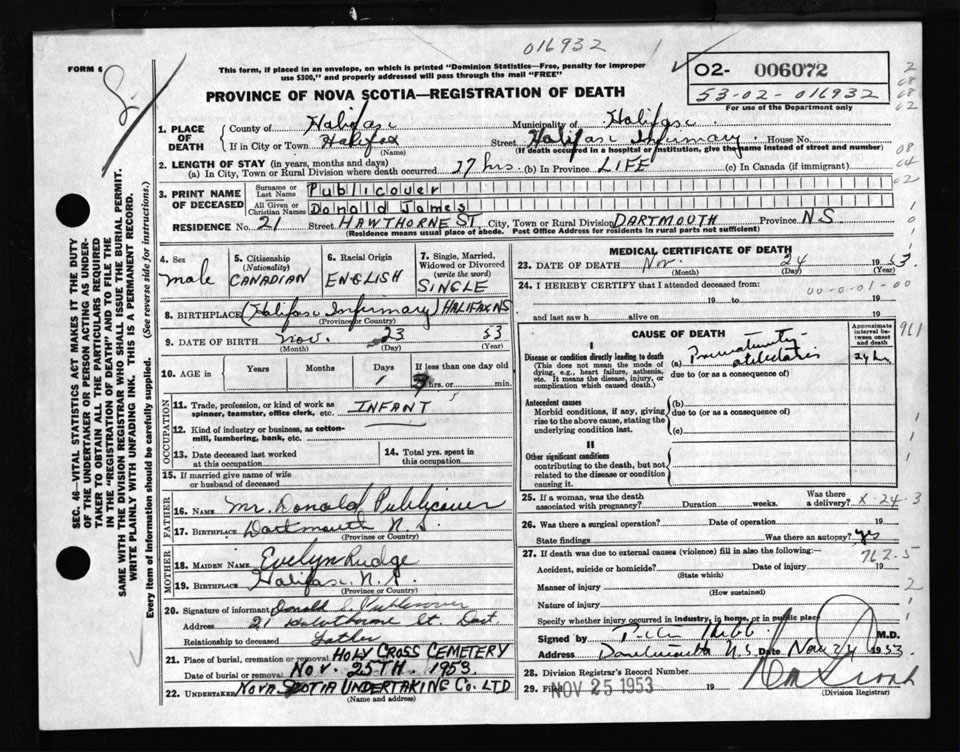 016932
FORM 6
This form, if placed in an envelope, on which is printed "Dominion Statistics—Free, penalty for improper
use $300," and properly addressed will pass through the mail "FREE"
O2- 006072
53-02-016932
For use of the Department only
PROVINCE OF NOVA SCOTIA—REGISTRATION OF DEATH
1. PLACE OF DEATH
County of Halifax Municipality of Halifax
If in City or Town Halifax (Name) Street Halifax Infirmary House No.
(If death occurred in a hospital or institution, give the name instead of street and number)
2. LENGTH OF STAY (in years, months and days)
(a) In City, Town or Rural Division where death occurred 17 hrs. (b) In Province LIFE (c) In Canada (if immigrant)
3. PRINT NAME OF DECEASED
Surname or Last Name Publicover
All Given or Christian Names Donald James
RESIDENCE No. 21 Street HAWTHORNE ST City, Town or Rural Division DARTMOUTH Province N.S.
(Residence means usual place of abode. Post Office Address for residents in rural parts not sufficient)
4. Sex male
5. Citizenship (Nationality) CANADIAN
6. Racial Origin ENGLISH
7. Single, Married, Widowed or Divorced (write the word) SINGLE
8. BIRTHPLACE (Halifax Infirmary) HALIFAX NS
(Province or Country)
9. DATE OF BIRTH Nov. 23 53
(Month) (Day) (Year)
10. AGE in Years Months Days 1 If less than one day old hrs. or min.
OCCUPATION
11. Trade, profession, or kind of work as spinner, teamster, office clerk, etc. INFANT
12. Kind of industry or business, as cotton-mill, lumbering, bank, etc.
13. Date deceased last worked at this occupation
14. Total yrs. spent in this occupation
15. If married give name of wife or husband of deceased
FATHER
16. NAME Mr. Donald Publicover
17. BIRTHPLACE Dartmouth N.S.
(Province or Country)
MOTHER
18. MAIDEN NAME Evelyn Rudge
19. BIRTHPLACE Halifax N.S.
(Province or Country)
20. Signature of informant Donald C. Publicover
Address 21 Hawthorne St. Dart.
Relationship to deceased Father
21. Place of burial, cremation or removal HOLY CROSS CEMETERY
Date of burial or removal NOV. 25TH. 1953
22. UNDERTAKER NOVA SCOTIA UNDERTAKING CO. LTD
(Name and address)
MEDICAL CERTIFICATE OF DEATH
23. DATE OF DEATH Nov. 24 1953.
(Month) (Day) (Year)
24. I HEREBY CERTIFY that I attended deceased from:
00-0-01-00
19 to 19
and last saw h alive on 19
CAUSE OF DEATH
Approximate interval between onset and death
I
Disease or condition directly leading to death
(This does not mean the mode of dying, e.g., heart failure, asthenia, etc. It means the disease, injury, or complication which caused death.)
(a) Prematurity atelectasis 24 hrs
due to (or as a consequence of)
Antecedent causes
Morbid conditions, if any, giving rise to the above cause, stating the underlying condition last.
(b)
due to (or as a consequence of)
(c)
II
Other significant conditions
contributing to the death, but not related to the disease or condition causing it.
25. If a woman, was the death associated with pregnancy? Duration weeks. Was there a delivery? X-24-3
26. Was there a surgical operation? Date of operation 19
State findings Was there an autopsy? yes
27. If death was due to external causes (violence) fill in also the following:—
762.5
Accident, suicide or homicide? Date of injury 19
(State which)
Manner of injury
(How sustained)
Nature of injury
Specify whether injury occurred in industry, in home, or in public place
Signed by M.D.
Address Dartmouth N.S. Date Nov 24 1953.
28. Division Registrar's Record Number
29. Filed NOV 25 1953 19
(Division Registrar)
SEC. 46—VITAL STATISTICS ACT MAKES IT THE DUTY
OF THE UNDERTAKER OR PERSON ACTING AS UNDER-
TAKER TO OBTAIN ALL THE PARTICULARS REQUIRED
IN THE "REGISTRATION OF DEATH" AND TO FILE THE
SAME WITH THE DIVISION REGISTRAR WHO SHALL ISSUE THE BURIAL PERMIT.
WRITE PLAINLY WITH UNFADING INK. THIS IS A PERMANENT RECORD.
Every item of information should be carefully supplied. (See reverse side for instructions.)